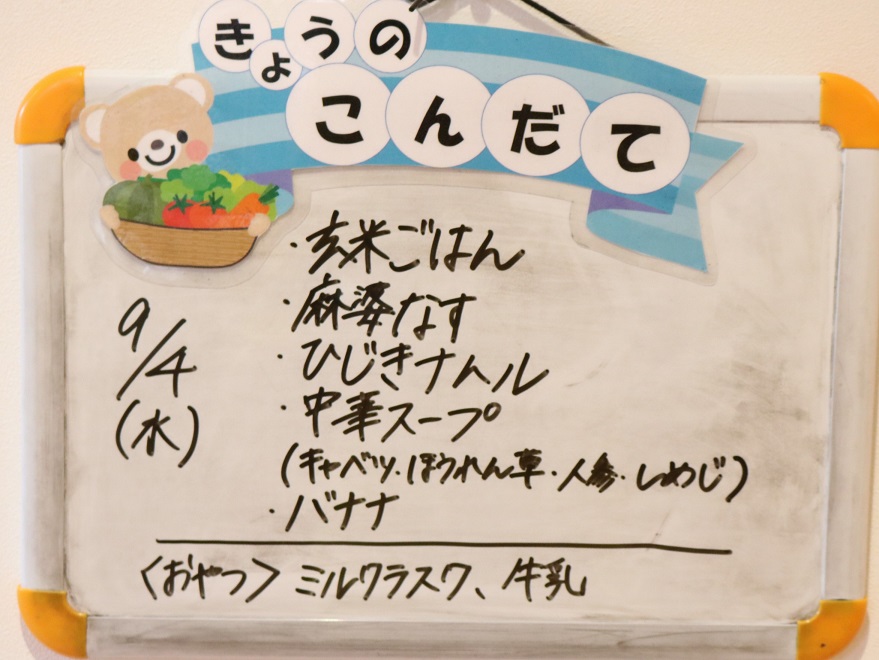 きょうの
こんだて
9/4
(水)
・玄米ごはん
・麻婆なす
・ひじきナムル
・中華スープ
(キャベツ・ほうれん草・人参・しめじ)
・バナナ
〈おやつ〉ミルクラスク、牛乳